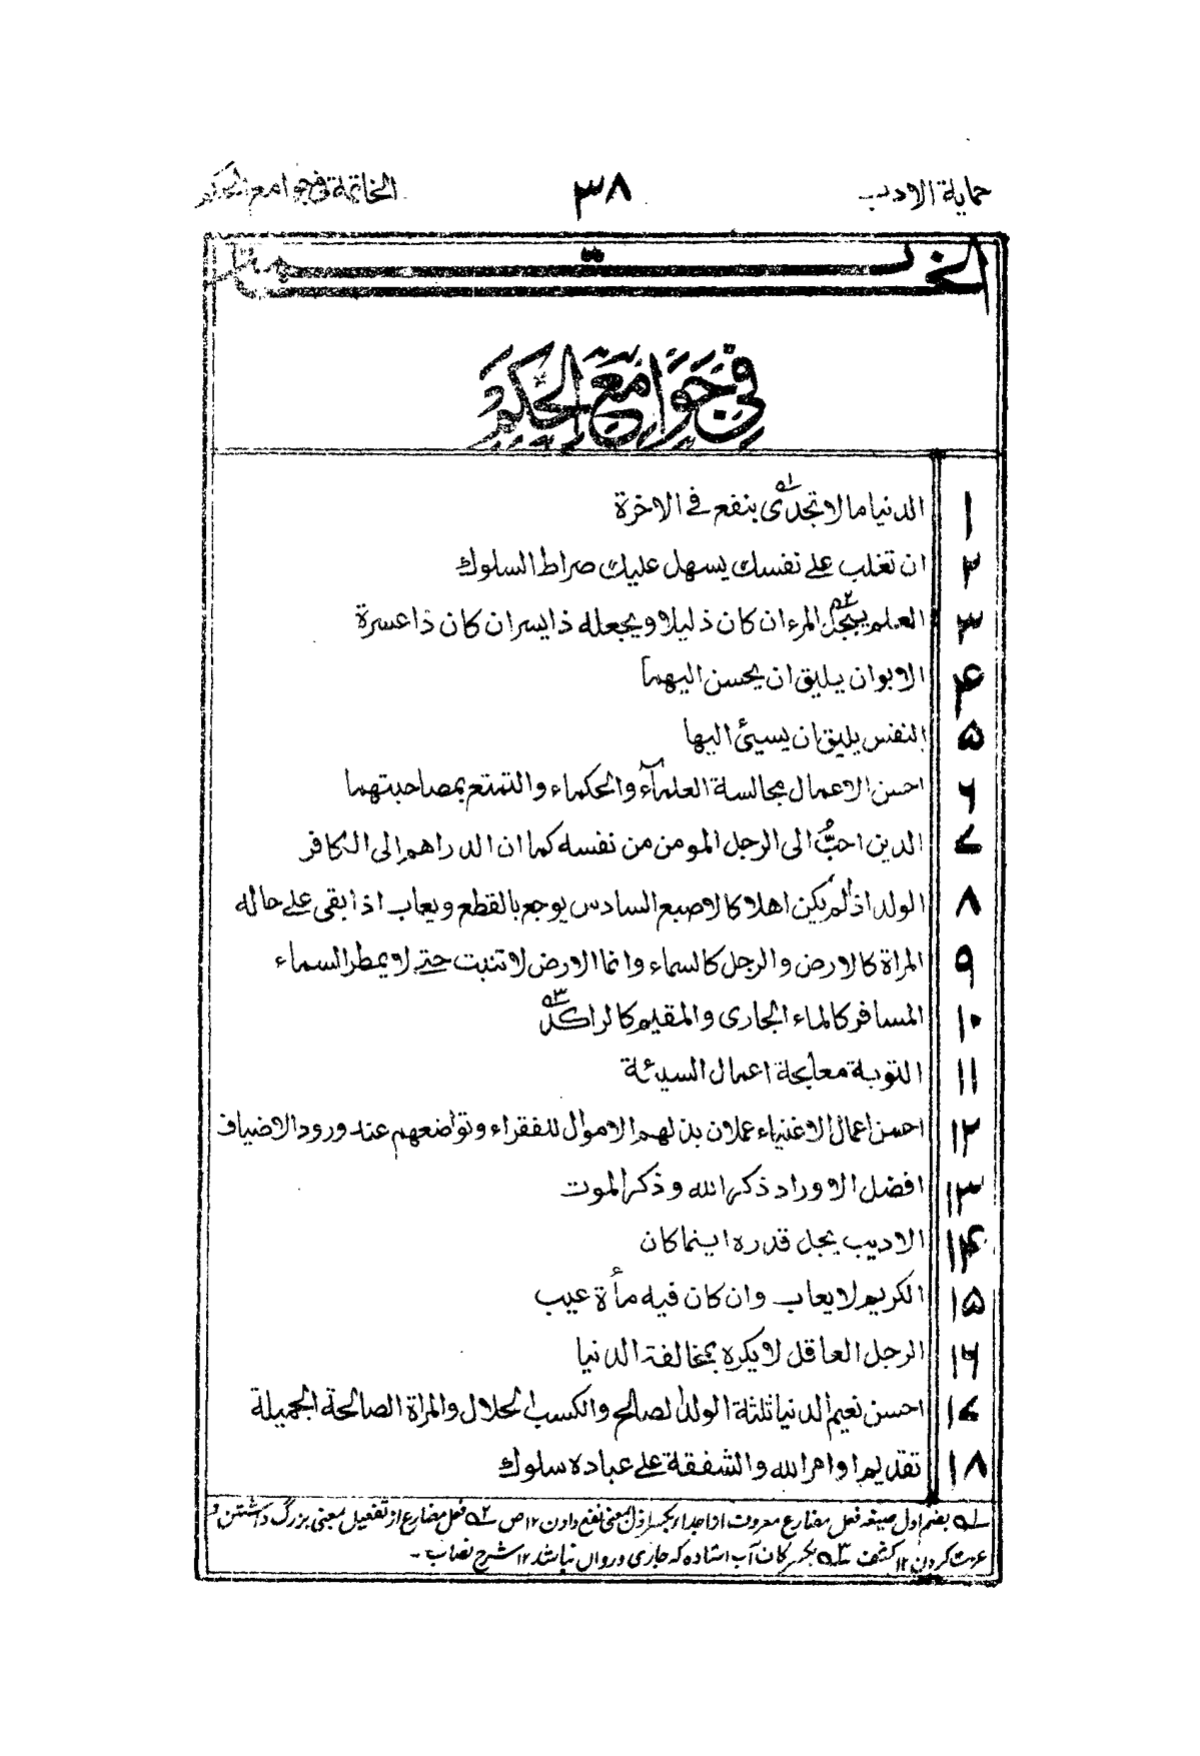 حماية الاديب
٣٨
الخاتمة فى جوامع الحكم
الخاتمة
فِي جَوَامِعِ الْحِكَمِ
١ الدنيا ما لا تجدى ١ە بنفع فے الاخرة
٢ ان تغلب علے نفسك يسهل عليك صراط السلوك
٣ العلم يبجّل ٢ە المرء ان كان ذليلا ويجعله ذا يسر ان كان ذا عسرة
۴ الابوان يليق ان يحسن اليهما
۵ النفس يليق ان يسيئ اليها
۶ احسن الاعمال مجالسة العلمآء والحكماء والتمتع بمصاحبتهما
۷ الدين احبُّ الى الرجل المومن من نفسه كما ان الدراهم الى الكافر
٨ الولد اذ لم يكن اهلا كالاصبع السادس يوجع بالقطع ويعاب اذا بقى علے حاله
٩ المراة كالارض والرجل كالسماء وانما الارض لا تنبت حتے لا يمطر السماء
١٠ المسافر كالماء الجارى والمقيم كالراكد ٣ە
١١ التوبة معالجة اعمال السيئة
١٢ احسن اعمال الاغنياء عملان بذلهم الاموال للفقراء وتواضعهم عند ورود الاضياف
١٣ افضل الاوراد ذكر الله وذكر الموت
١۴ الاديب يجل قدره اينما كان
١۵ الكريم لا يعاب وان كان فيه مأة عيب
١۶ الرجل العاقل لا يكره بمخالفة الدنيا
١۷ احسن نعيم الدنيا ثلثة الولد الصالح والكسب الحلال والمراة الصالحة الجميلة
١٨ تقديم اوامر الله والشفقة علے عباده سلوك
١ە بضم اول صيغه فعل مضارع معروف از اجداء بكسر اول بمعنى نفع دادن ١٢ ص ٢ە فعل مضارع از تفعيل بمعنى بزرگ داشتن و
عزت كردن ١٢ كشف ٣ە بكسر كاف آب استاده كه جارى ورواں نباشد ١٢ شرح نصاب ۔